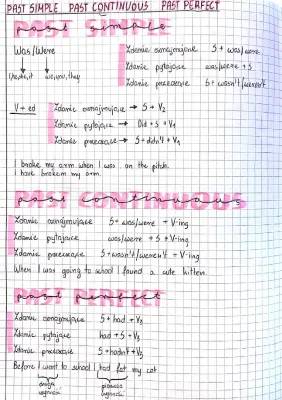 PAST SIMPLE PAST CONTINUOUS PAST PERFECT
PAST SIMPLE
past simple
Was/Were
he,she,it we,you,they
Zdanie oznajmujące S + was/were
Zdanie pytające was/were + S
Zdanie przeczące S + wasn't/weren't
V + ed
Zdanie oznajmujące → S + V2
Zdanie pytające → Did + S + V1
Zdanie przeczące → S + didn't + V1
I broke my arm when I was on the pitch.
I have broken my arm.
PAST CONTINUOUS
past continuous
Zdanie oznajmujące S + was/were + V-ing
Zdanie pytające was/were + S + V-ing
Zdanie przeczące S + wasn't/weren't + V-ing
When I was going to school I found a cute kitten.
PAST PERFECT
past perfect
Zdanie oznajmujące S + had + V3
Zdanie pytające had + S + V3
Zdanie przeczące S + hadn't + V3
Before I went to school I had fet my cat
druga czynność pierwsza czynność